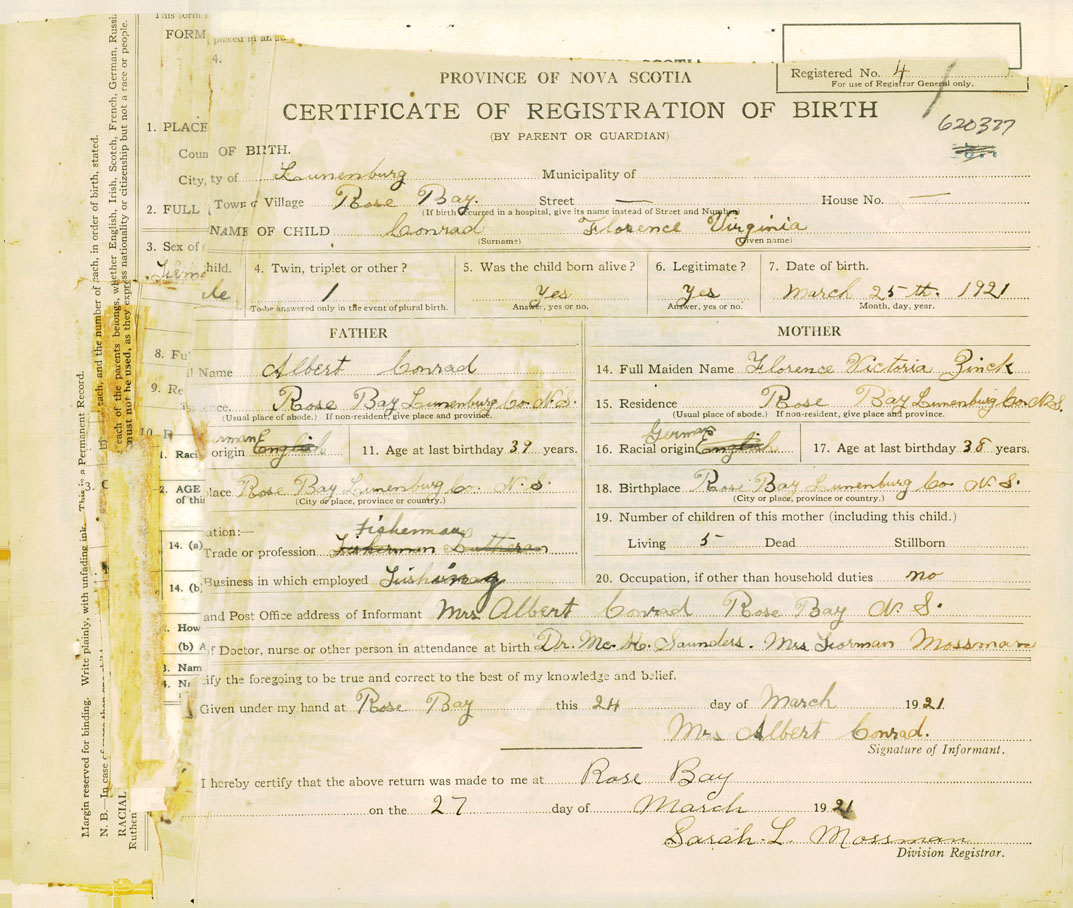 This form
FORM placed in an
4.
PROVINCE OF NOVA SCOTIA
Registered No. 4
For use of Registrar General only.
CERTIFICATE OF REGISTRATION OF BIRTH
(BY PARENT OR GUARDIAN)
620377
1. PLACE
Coun OF BIRTH.
City, ty of Lunenburg Municipality of
Town Village Rose Bay. Street — House No. —
(If birth occurred in a hospital, give its name instead of Street and Number)
2. FULL NAME OF CHILD Conrad Florence Virginia
(Surname) (given name)
3. Sex of child. 4. Twin, triplet or other? 5. Was the child born alive? 6. Legitimate? 7. Date of birth.
le 1 Yes Yes March 25th. 1921
To be answered only in the event of plural birth. Answer, yes or no. Answer, yes or no. Month, day, year.
FATHER MOTHER
8. Fu
l Name Albert Conrad 14. Full Maiden Name Florence Victoria Zinck
9. Re
Rose Bay Lunenburg Co. N.S. 15. Residence Rose Bay Lunenburg Co. N.S.
(Usual place of abode.) If non-resident, give place and province. (Usual place of abode.) If non-resident, give place and province.
10. R German German
1. Raci origin English 11. Age at last birthday 39 years. 16. Racial origin English 17. Age at last birthday 38 years.
2. AGE place Rose Bay Lunenburg Co. N.S. 18. Birthplace Rose Bay Lunenburg Co N.S.
of thi (City or place, province or country.) (City or place, province or country.)
ation:— Fisherman 19. Number of children of this mother (including this child.)
14. (a) Trade or profession Fisherman Lutheran Living 5 Dead Stillborn
14. (b) Business in which employed Fishing 20. Occupation, if other than household duties no
and Post Office address of Informant Mrs. Albert Conrad Rose Bay N.S.
How
(b) A of Doctor, nurse or other person in attendance at birth Dr. Mc. K. Saunders. Mrs Mossman
3. Nam
ify the foregoing to be true and correct to the best of my knowledge and belief.
Given under my hand at Rose Bay this 24 day of March 1921
Mrs Albert Conrad.
Signature of Informant.
I hereby certify that the above return was made to me at Rose Bay
on the 27 day of March 1921
Sarah L Mossman
Division Registrar.
Margin reserved for binding. Write plainly, with unfading ink. This is a Permanent Record.
N. B.—In case of each, and the number of each, in order of birth, stated.
RACIAL each of the parents belongs, whether English, Irish, Scotch, French, German, Russi
Ruthen must not be used, as they express nationality or citizenship but not a race or people.